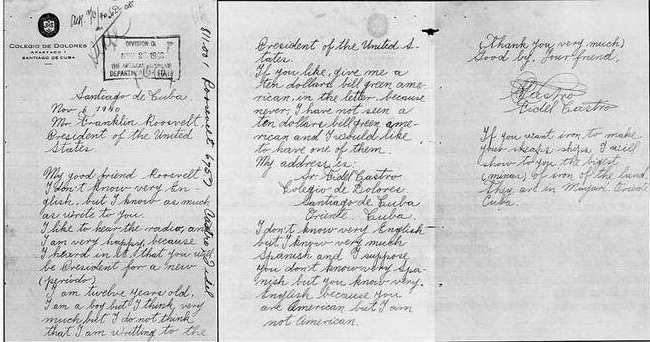 COLEGIO DE DOLORES
APARTADO 1
SANTIAGO DE CUBA
DIVISION OF
THE AMERICAN REPUBLICS
DEPARTMENT OF STATE
Santiago de Cuba.
Nov 6 1940.
Mr. Franklin Roosvelt
President of the United
States.
My good friend Roosevelt
I don't know very En-
glish, but I know as much
as write to you.
I like to hear the radio, and
I am very happy, because
I heard in it, that you will
be President for a new
(periodo)
I am twelve years old.
I am a boy but I think very
much but I do not think
that I am writting to the
811.001 Roosevelt 6757
Castro, Fidel
President of the United S-
tates.
If you like, give me a
ten dollars bill green ame-
rican, in the letter, because
never, I have not seen a
ten dollars bill green ame-
rican and I would like
to have one of them.
My address is:
Sr. Fidel Castro
Colegio de Dolores.
Santiago de Cuba
Oriente. Cuba.
I don't know very English
but I know very much
Spanish and I suppose
you don't know very Spa-
nish but you know very
English because you
are American but I am
not American.
(Thank you very much)
Good by. Your friend,
Castro
Fidel Castro
If you want iron to make
your sheaps ships I will
show to you the bigest
(minas) of iron of the land.
They are in Mayari. Oriente
Cuba.